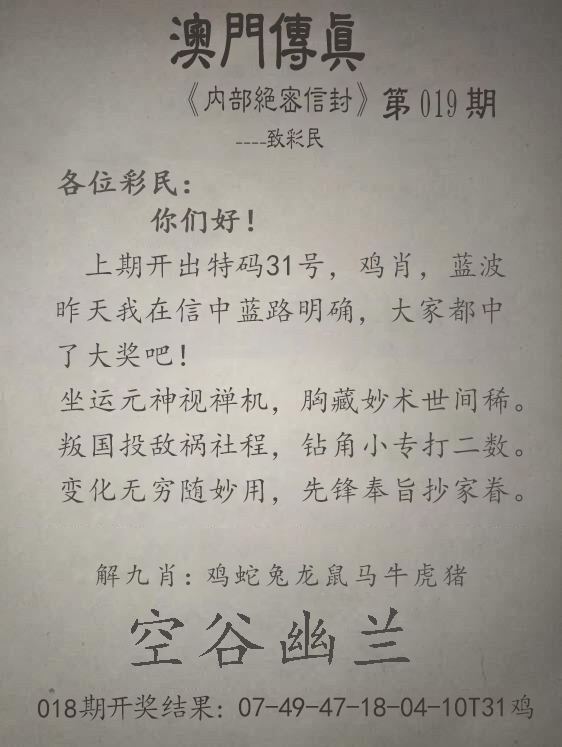 澳門傳真
《内部絕密信封》第019期
----致彩民
各位彩民:
你们好!
上期开出特码31号，鸡肖，蓝波
昨天我在信中蓝路明确，大家都中
了大奖吧!
坐运元神视禅机，胸藏妙术世间稀。
叛国投敌祸社程，钻角小专打二数。
变化无穷随妙用，先锋奉旨抄家眷。
解九肖:鸡蛇兔龙鼠马牛虎猪
空谷幽兰
018期开奖结果：07-49-47-18-04-10T31鸡